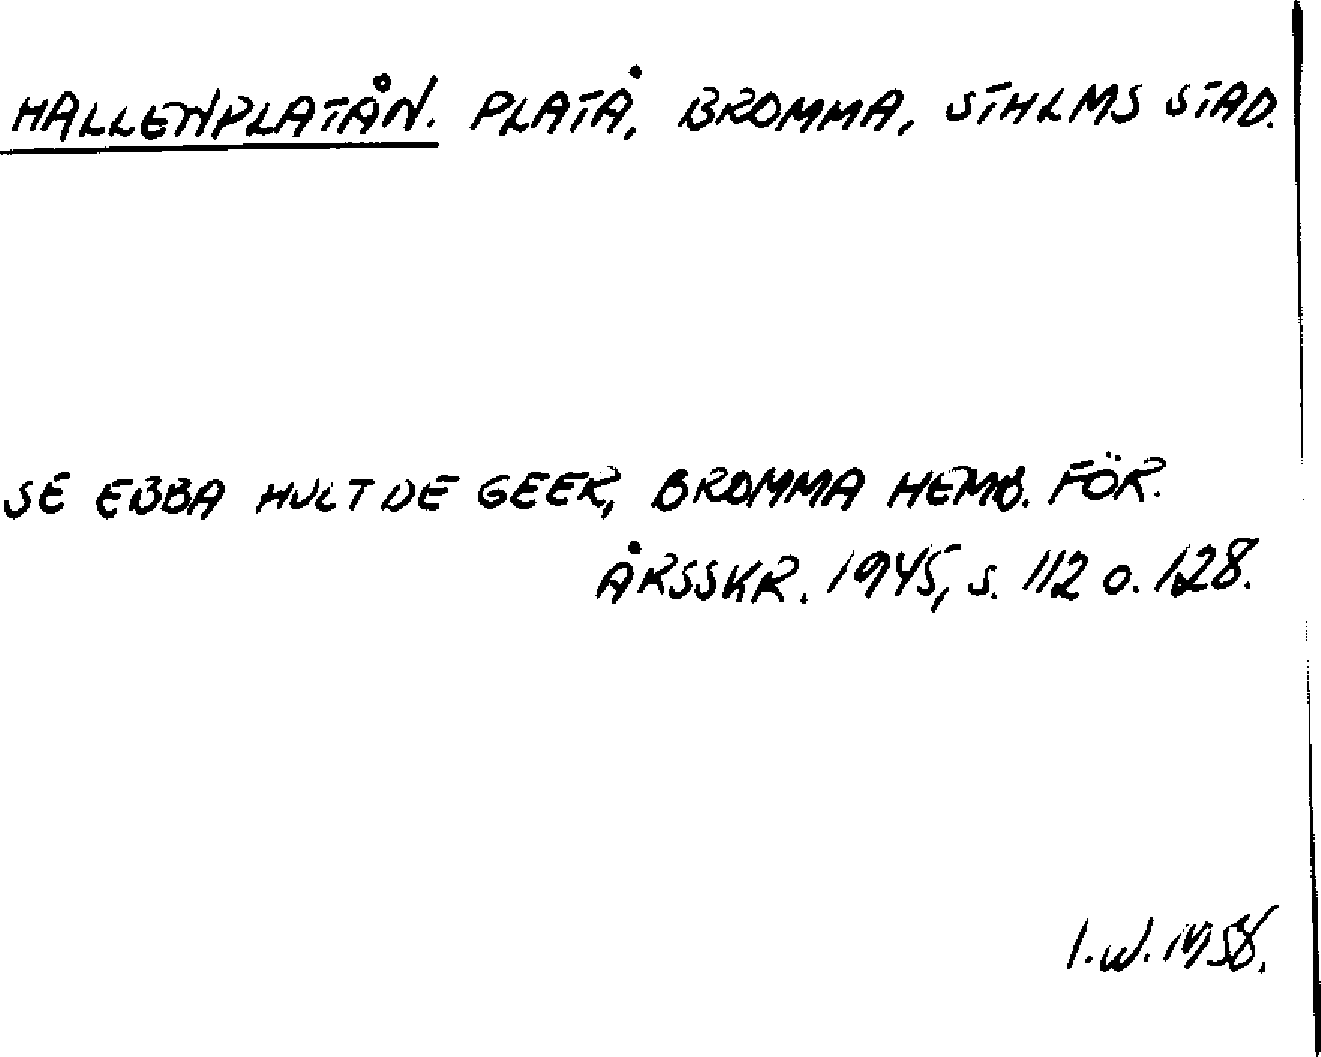 HALLENPLATÅN. PLATÅ, BROMMA, STHLMS STAD.
SE EBBA HULT DE GEER, BROMMA HEMB. FÖR.
ÅRSSKR. 1945, s. 112 o. 128.
I.W. 1958.